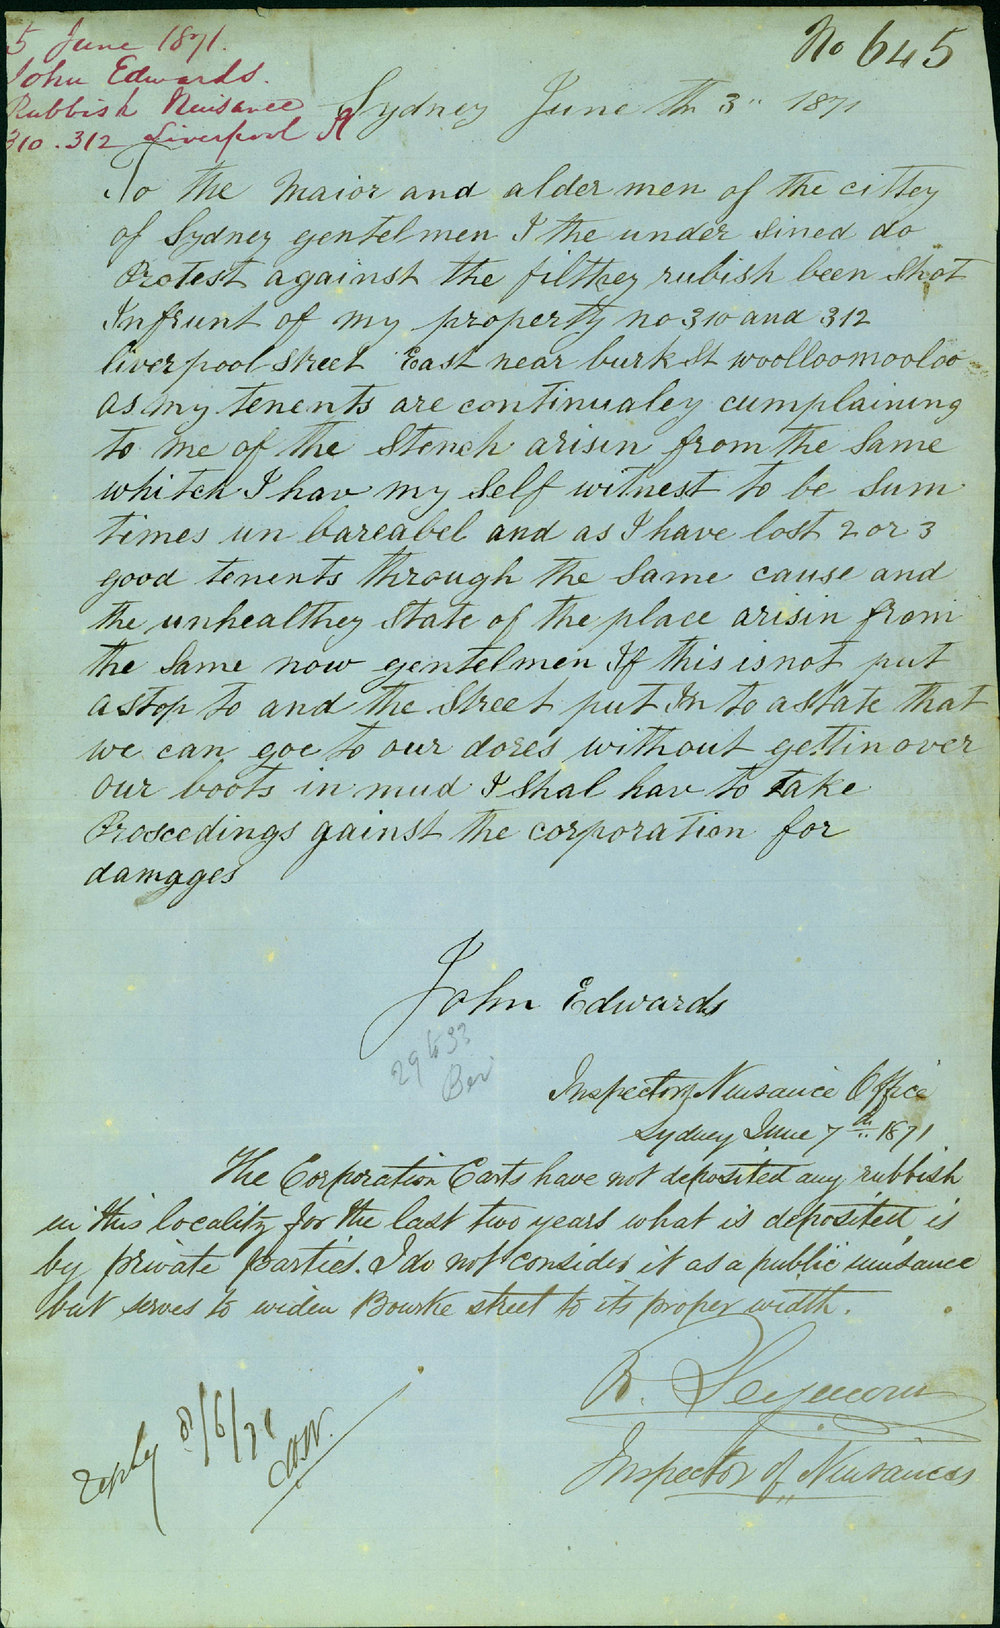 5 June 1871.
John Edwards.
Rubbish Nuisance
310.312 Liverpool St
No 645
Sydney June th 3" 1871
To the Maior and aldermen of the cittey
of Sydney gentelmen I the under sined do
Protest against the filthey rubish been Shot
Infrunt of my property no 310 and 312
liverpool Street East near burk St woolloomooloo
as my tenents are continualey cumplaining
to me of the Stench arisin from the Same
whitch I hav my Self witnest to be Sum
times un bareabel and as I have lost 2 or 3
good tenents through the Same cause and
the unhealthey State of the place arisin from
the Same now gentelmen If this is not put
a stop to and the Street put In to a state that
we can goe to our dores without gettin over
our boots in mud I Shal hav to take
Proscedings gainst the corporation for
damgges
John Edwards
29 to 33
Inspector of Nuisance Office
Sydney June 7th 1871
The Corporation Carts have not deposited any rubbish
in this locality for the last two years what is deposited is
by private parties. I do not consider it as a public nuisance
but serves to widen Bourke street to its proper width.
R. Seymour
Inspector of Nuisances
reply 8/6/71